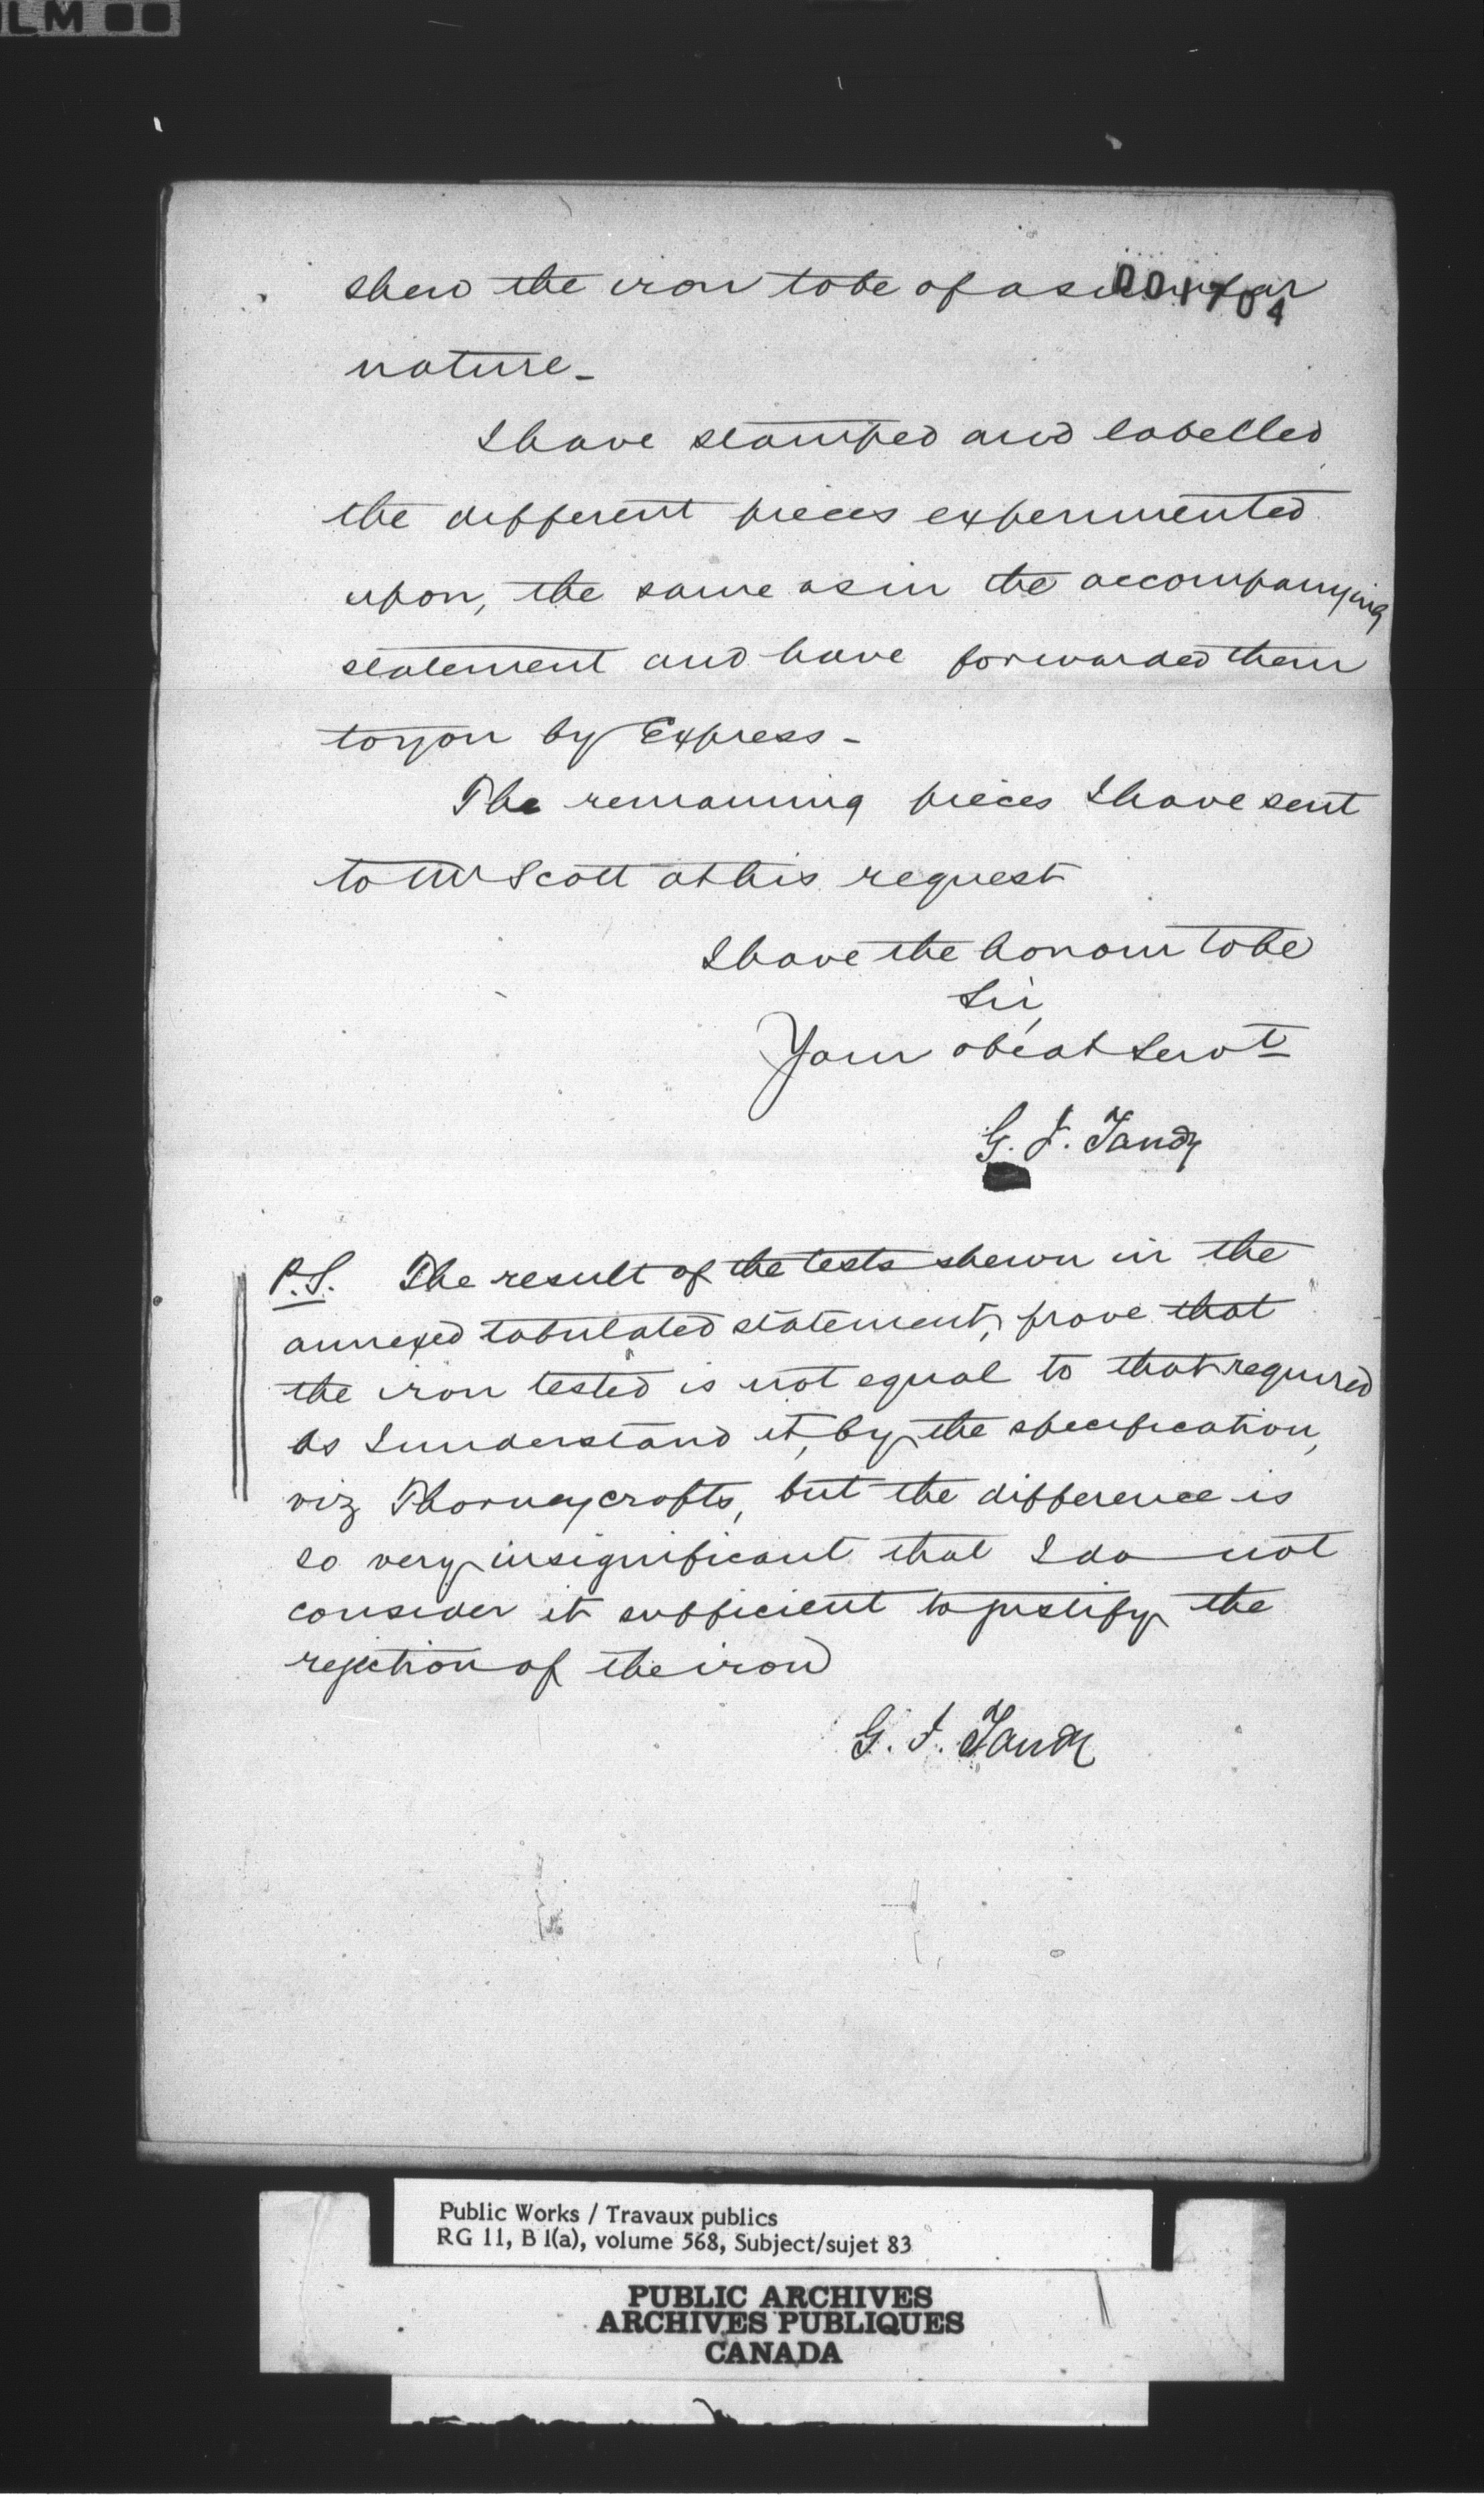 LM
001704
shew the iron to be of a similar
nature_
I have stamped and labelled
the different pieces experimented
upon, the same as in the accompanying
statement and have forwarded them
to you by Express_
The remaining pieces I have sent
to Mr Scott at his request
I have the honour to be
Sir,
Your obedt Servt
G. F. Tandy
P.S. The result of the tests shewn in the
annexed tabulated statement, prove that
the iron tested is not equal to that required
as I understand it, by the specification,
viz Thorneycrofts, but the difference is
so very insignificant that I do not
consider it sufficient to justify the
rejection of the iron
G. F. Tandy
Public Works / Travaux publics
RG 11, B 1(a), volume 568, Subject/sujet 83
PUBLIC ARCHIVES
ARCHIVES PUBLIQUES
CANADA